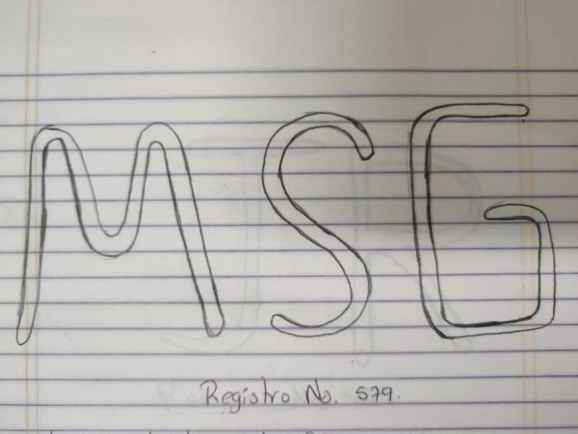 MSG
Registro No. 579.